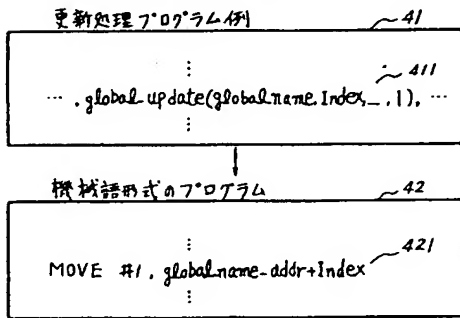 更新処理プログラム例
41
⋮
411
… , global-update(globalname, Index, _ , 1), …
⋮
機械語形式のプログラム
42
⋮
421
MOVE #1, globalname-addr+Index
⋮